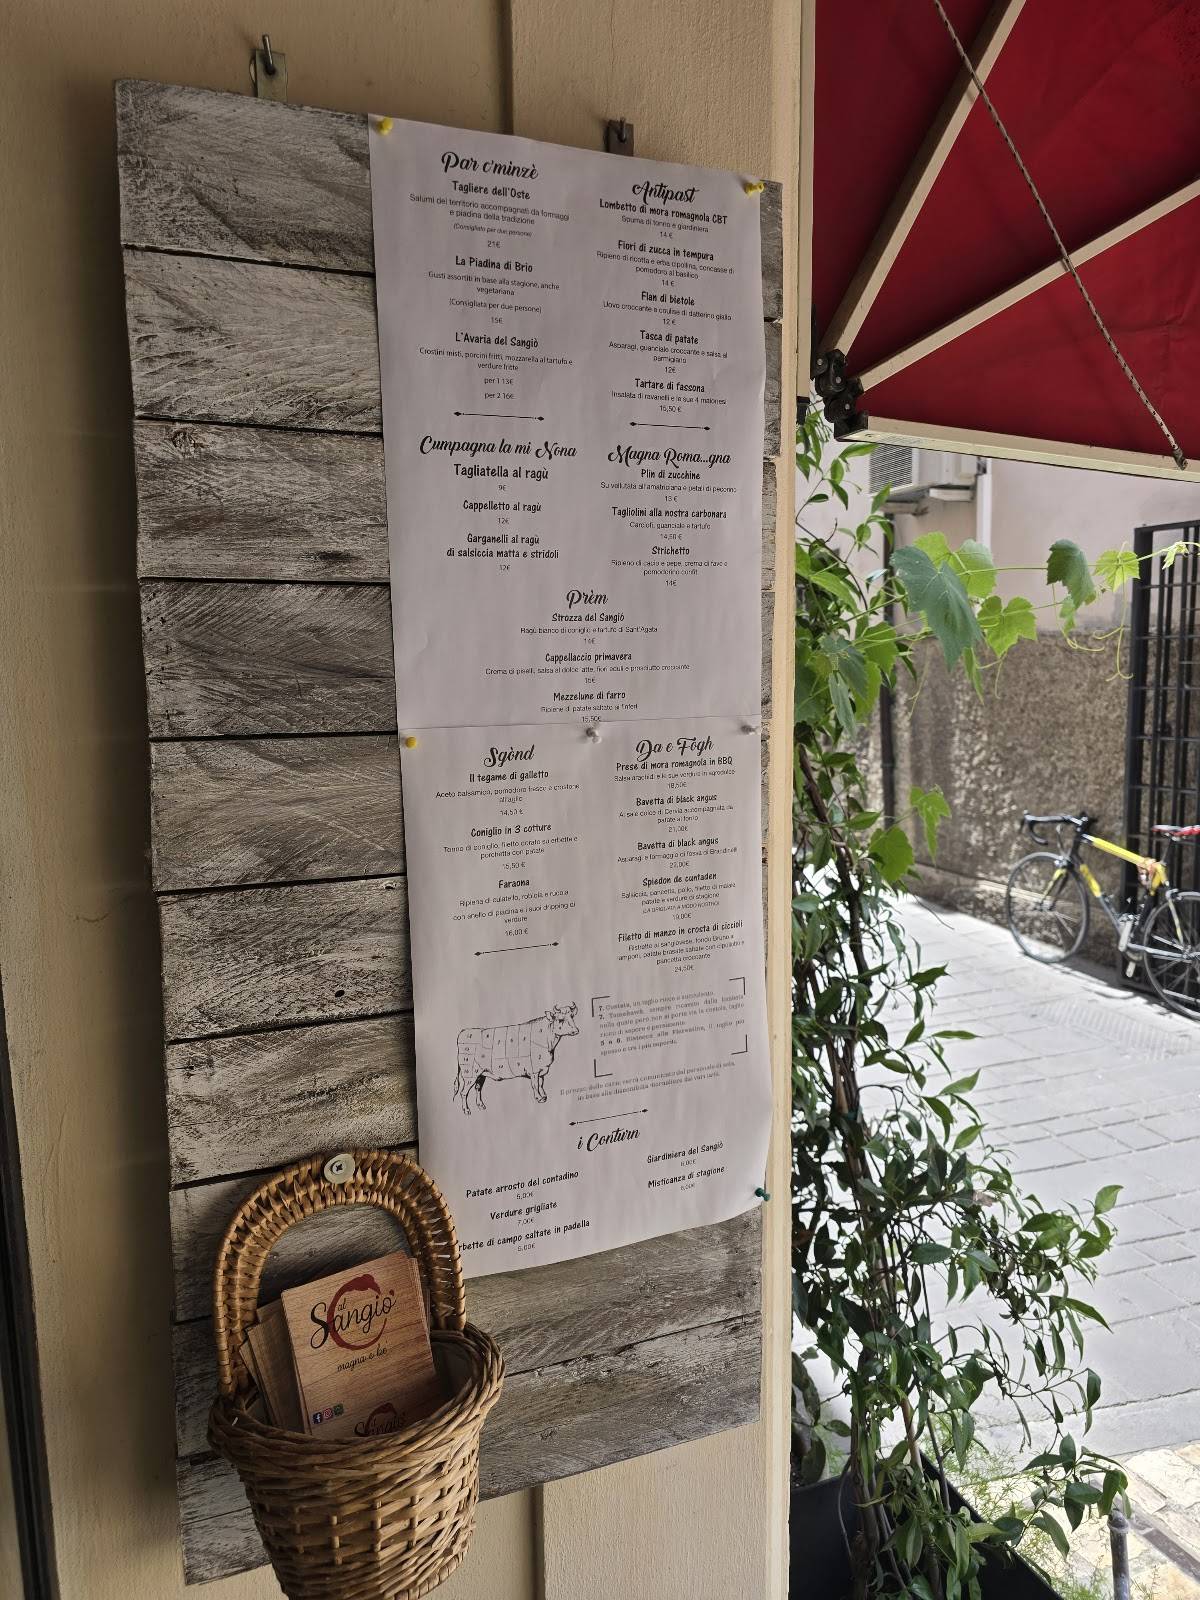 Par c'minzè
Tagliere dell'Oste
Salumi del territorio accompagnati da formaggi
e piadina della tradizione
(Consigliato per due persone)
21€
La Piadina di Brio
Gusti assortiti in base alla stagione, anche
vegetariana
(Consigliata per due persone)
15€
L'Avaria del Sangiò
Crostini misti, porcini fritti, mozzarella al tartufo e
verdure fritte
per 1 13€
per 2 16€
Antipast
Lombetto di mora romagnola CBT
Spuma di tonno e giardiniera
14 €
Fiori di zucca in tempura
Ripieno di ricotta e erba cipollina, concasse di
pomodoro al basilico
14 €
Flan di bietole
Uovo croccante e coulise di datterino giallo
12 €
Tasca di patate
Asparagi, guanciale croccante e salsa al
parmigiano
12€
Tartare di fassona
Insalata di ravanelli e le sue 4 maionesi
15,50 €
Cumpagna la mi Nona
Tagliatella al ragù
9€
Cappelletto al ragù
12€
Garganelli al ragù
di salsiccia matta e stridoli
12€
Magna Roma...gna
Plin di zucchine
Su vellutata all'amatriciana e petali di pecorino
13 €
Tagliolini alla nostra carbonara
Carciofi, guanciale e tartufo
14,50 €
Strichetto
Ripieno di cacio e pepe, crema di fave e
pomodorino confit
14€
Prèm
Strozza del Sangiò
Ragù bianco di coniglio e tartufo di Sant'Agata
14€
Cappellaccio primavera
Crema di piselli, salsa al dolce latte, fiori eduli e prosciutto croccante
15€
Mezzelune di farro
Ripiene di patate saltato ai
15,50€
Sgònd
Il tegame di galletto
Aceto balsamico, pomodoro fresco e crostone
all'aglio
14,50 €
Coniglio in 3 cotture
Tonno di coniglio, filetto dorato su erbette e
porchetta con patate
15,50 €
Faraona
Ripiena di culatello, robiola e rucola
con anello di piadina e i suoi dripping di
verdure
16,00 €
Da e Fògh
Prese di mora romagnola in BBQ
Salsa arachidi e le sue verdure in agrodolce
18,50€
Bavetta di black angus
Al sale dolce di Cervia accompagnata da
patate al forno
21,00€
Bavetta di black angus
Asparagi e formaggio di fossa di Brandinelli
23,00€
Spiedon de cuntaden
Salsiccia, pancetta, pollo, filetto di maiale
patate e verdure di stagione
(LA GRIGLIATA A MODO NOSTRO)
19,00€
Filetto di manzo in crosta di ciccioli
Ristretto al sangiovese, fondo Bruno a
lamponi, patate brasate saltate con cipollotto e
pancetta croccante
24,50€
7. Costata, un taglio ricco e succulento.
7. Tomahawk, sempre ricavato dalla lombata
nella quale però non si porta via la costola, taglio
ricco di sapore e persistente.
5 e 6. Bistecca alla Fiorentina, il taglio più
spesso e tra i più saporiti.
Il prezzo delle carne verrà comunicato dal personale di sala,
in base alla disponibilità
i Conturn
Patate arrosto del contadino
5,00€
Verdure grigliate
7,00€
rbette di campo saltate in padella
5,00€
Giardiniera del Sangiò
6,00€
Misticanza di stagione
5,00€
al
Sangio'
magna e bé